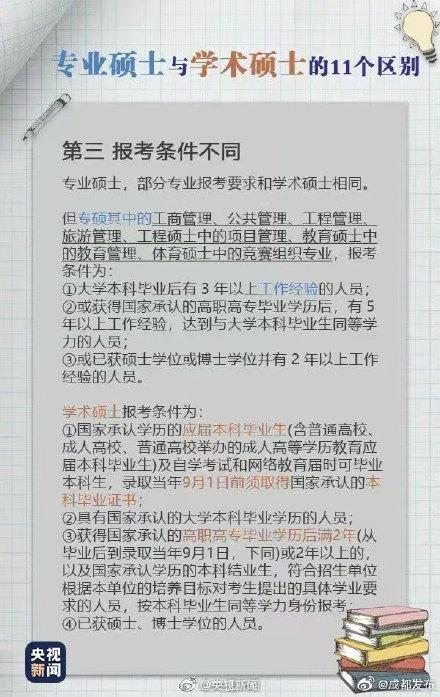 专业硕士与学术硕士的11个区别
第三 报考条件不同
专业硕士，部分专业报考要求和学术硕士相同。
但专硕其中的工商管理、公共管理、工程管理、
旅游管理、工程硕士中的项目管理、教育硕士中
的教育管理、体育硕士中的竞赛组织专业，报考
条件为：
①大学本科毕业后有 3 年以上工作经验的人员；
②或获得国家承认的高职高专毕业学历后，有 5
年以上工作经验，达到与大学本科毕业生同等学
力的人员；
③或已获硕士学位或博士学位并有 2 年以上工作
经验的人员。
学术硕士报考条件为：
①国家承认学历的应届本科毕业生(含普通高校、
成人高校、普通高校举办的成人高等学历教育应
届本科毕业生)及自学考试和网络教育届时可毕业
本科生，录取当年9月1日前须取得国家承认的本
科毕业证书；
②具有国家承认的大学本科毕业学历的人员；
③获得国家承认的高职高专毕业学历后满2年(从
毕业后到录取当年9月1日，下同)或2年以上的，
以及国家承认学历的本科结业生，符合招生单位
根据本单位的培养目标对考生提出的具体学业要
求的人员，按本科毕业生同等学力身份报考；
④已获硕士、博士学位的人员。
央视
新闻
@央视新闻
@成都发布